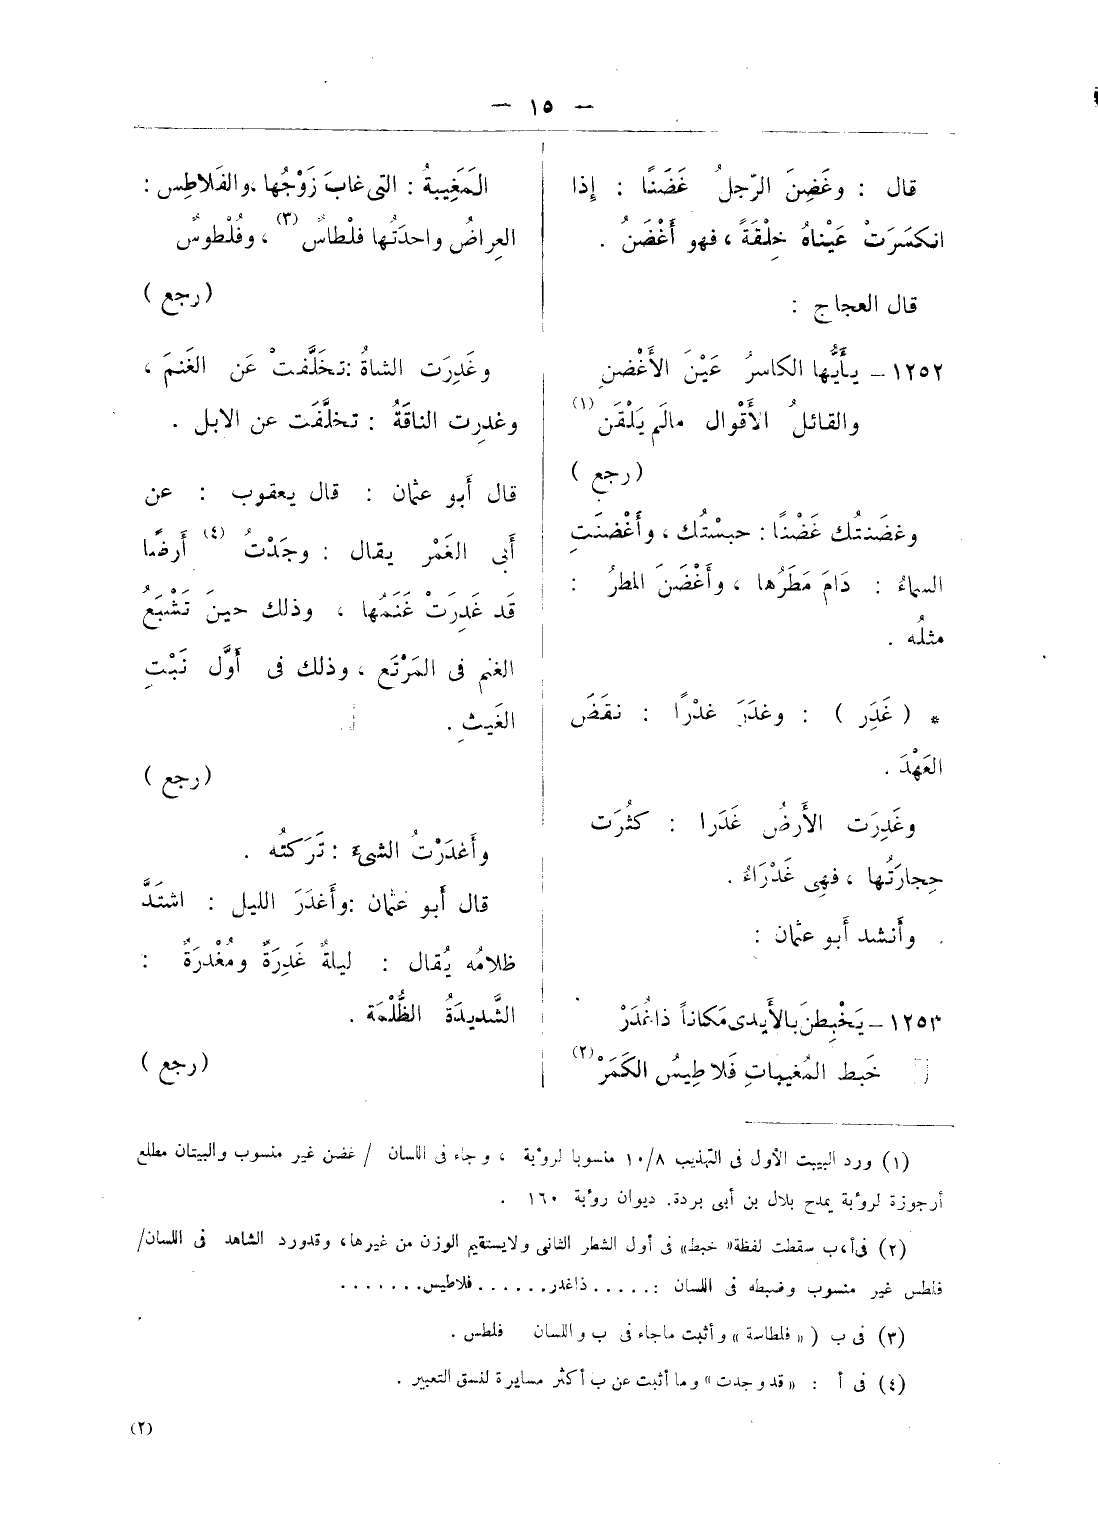 — ١٥ —
قال : وغَضِنَ الرّجلُ غَضَنًا : إِذا
انكسَرَتْ عَيْناهُ خِلْقَةً ، فهو أَغْضَنُ .
قال العجاج :
١٢٥٢ – يأَيُّها الكاسرُ عَيْنَ الأَغْضنِ
والقائلُ الأَقْوال مالَم يَلْقَن (١)
( رجع )
وغضَنتُك غَضْنًا : حبسْتُك ، وأَغْضنَتِ
السماءُ : دَامَ مَطَرُها ، وأَغْضَنَ المطرُ :
مثلُه .
* ( غَدَِر ) : وغدَرَ غدْرًا : نقَضَ
العَهْدَ .
وغَدِرَت الأَرضُ غَدَرا : كثُرَت
حِجارَتُها ، فهِى غَدْرَاءُ .
وأَنشد أَبو عثمان :
١٢٥٣ – يَخْبِطنَ بالأَيدى مَكاناً ذا غُدَرْ
خَبط المُغيباتِ فَلاطِيسُ الكَمَرْ (٢)
المَغِيبةُ : التى غابَ زَوْجُها ، والفَلاطِس :
العِراضُ واحدَتُها فلْطاسٌ (٣) ، وفُلْطوسٌ
( رجع )
وغَدِرَت الشاةُ : تخَلَّفتْ عَن الغَنمَ ،
وغدِرت الناقَةُ : تخلَّفَت عن الابل .
قال أَبو عثمان : قال يعقوب : عن
أَبى الغَمْر يقال : وجَدْتُ (٤) أَرضًا
قَد غَدِرَتْ غَنَمُها ، وذلك حينَ تَشْبَعُ
الغنم فى المَرْتَع ، وذلك فى أَوَّل نَبْتِ
الغَيثِ .
( رجع )
وأَغدَرْتُ الشىءَ : تَرَكتُه .
قال أَبو عثمان : وأَغدَرَ الليل : اشتَدَّ
ظلامُه يُقال : ليلةٌ غَدِرَةٌ ومُغْدرَةٌ :
الشَّديدَةُ الظُّلْمَة .
( رجع )
(١) ورد البيت الأول فى التهذيب ١٠/٨ منسوبا لرؤبة ، وجاء فى اللسان / غضن غير منسوب والبيتان مطلع
أرجوزة لرؤبة يمدح بلال بن أبى بردة. ديوان رؤبة ١٦٠ .
(٢) فى أ ، ب سقطت لفظة « خبط » فى أول الشطر الثانى ولايستقيم الوزن من غيرها، وقدورد الشاهد فى اللسان/
فلطس غير منسوب وضبطه فى اللسان : ..... ذاغدر...... فلاطيس.......
(٣) فى ب ( « فلطاسة » وأثبت ماجاء فى ب واللسان فلطس .
(٤) فى أ : « قد وجدت » وما أثبت عن ب أكثر مسايرة لنسق التعبير .
(٢)